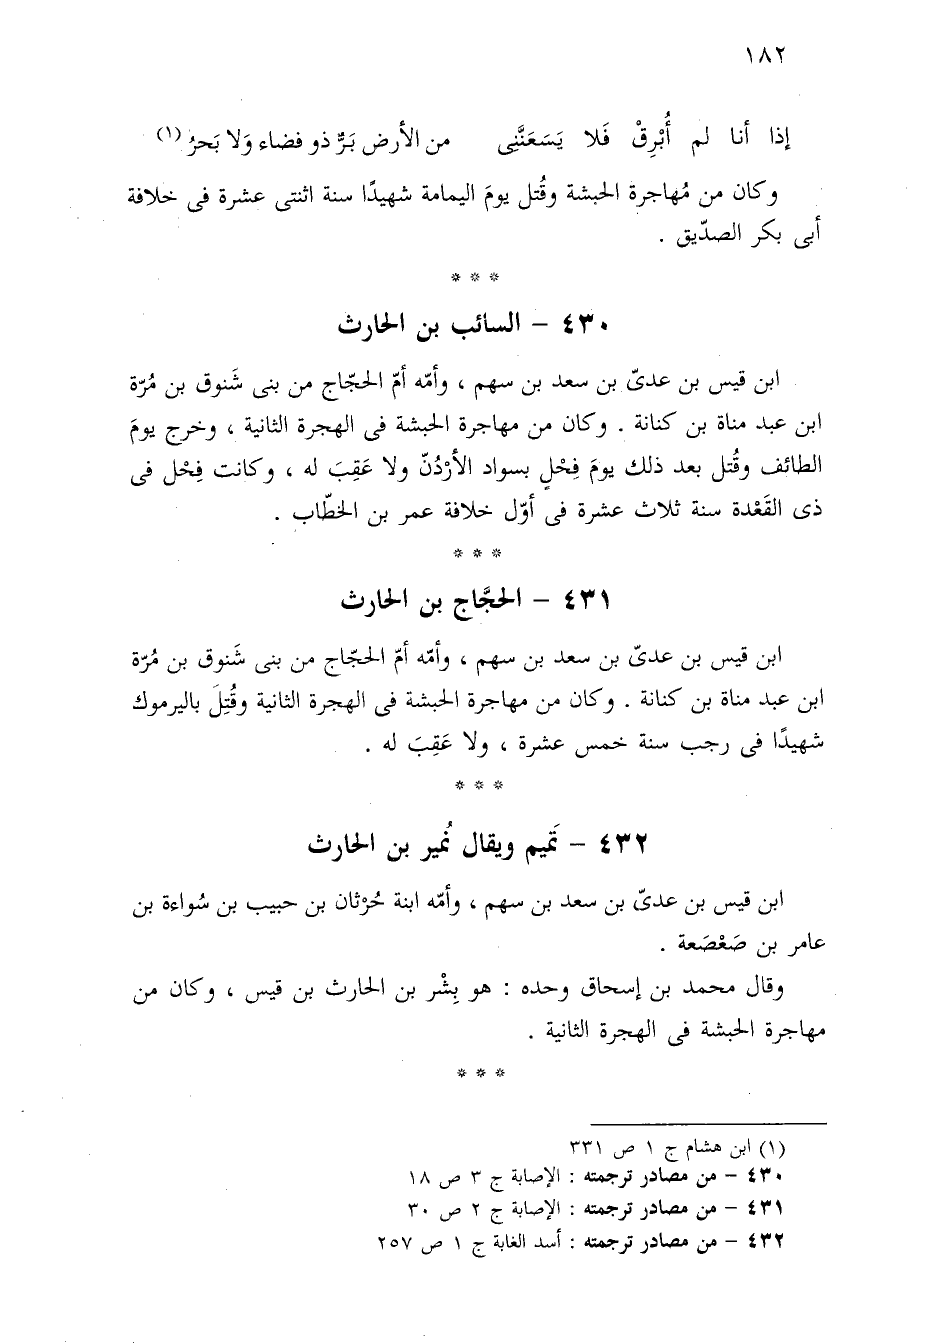 ١٨٢
إذا أنا لم أُبْرِقْ فَلا يَسَعَنَّنِى من الأرض بَرٌّ ذو فضاء وَلا بَحرُ (١)
وكان من مُهاجرة الحبشة وقُتل يومَ اليمامة شهيدًا سنة اثنتى عشرة فى خلافة
أبى بكر الصدّيق .
* * *
٤٣٠ - السائب بن الحارث
ابن قيس بن عدىّ بن سعد بن سهم ، وأمّه أمّ الحجّاج من بنى شَنوق بن مُرّة
ابن عبد مناة بن كنانة . وكان من مهاجرة الحبشة فى الهجرة الثانية ، وخرج يومَ
الطائف وقُتل بعد ذلك يومَ فِحْلٍ بسواد الأرْدُنّ ولا عَقِبَ له ، وكانت فِحْل فى
ذى القَعْدة سنة ثلاث عشرة فى أوّل خلافة عمر بن الخطّاب .
* * *
٤٣١ - الحجَّاج بن الحارث
ابن قيس بن عدىّ بن سعد بن سهم ، وأمّه أمّ الحجّاج من بنى شَنوق بن مُرّة
ابن عبد مناة بن كنانة . وكان من مهاجرة الحبشة فى الهجرة الثانية وقُتِلَ باليرموك
شهيدًا فى رجب سنة خمس عشرة ، ولا عَقِبَ له .
* * *
٤٣٢ - تَميم ويقال نُمير بن الحارث
ابن قيس بن عدىّ بن سعد بن سهم ، وأمّه ابنة حُرْثان بن حبيب بن سُواءة بن
عامر بن صَعْصَعة .
وقال محمد بن إسحاق وحده : هو بِشْر بن الحارث بن قيس ، وكان من
مهاجرة الحبشة فى الهجرة الثانية .
* * *
(١) ابن هشام ج ١ ص ٣٣١
٤٣٠ - من مصادر ترجمته : الإصابة ج ٣ ص ١٨
٤٣١ - من مصادر ترجمته : الإصابة ج ٢ ص ٣٠
٤٣٢ - من مصادر ترجمته : أسد الغابة ج ١ ص ٢٥٧